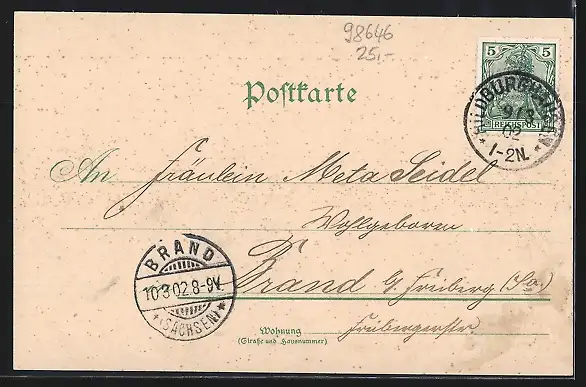 98646
25,-
5 5
REICHSPOST
HILDBURGHAUSEN
9/3
02
1-2N.
Postkarte
An Fräulein Meta Seidel
Wohlgeboren
BRAND
10 3 02 8-9V.
(SACHSEN)
Brand b. Freiberg (Sa.)
Wohnung
(Straße und Hausnummer)
Freibergerstr